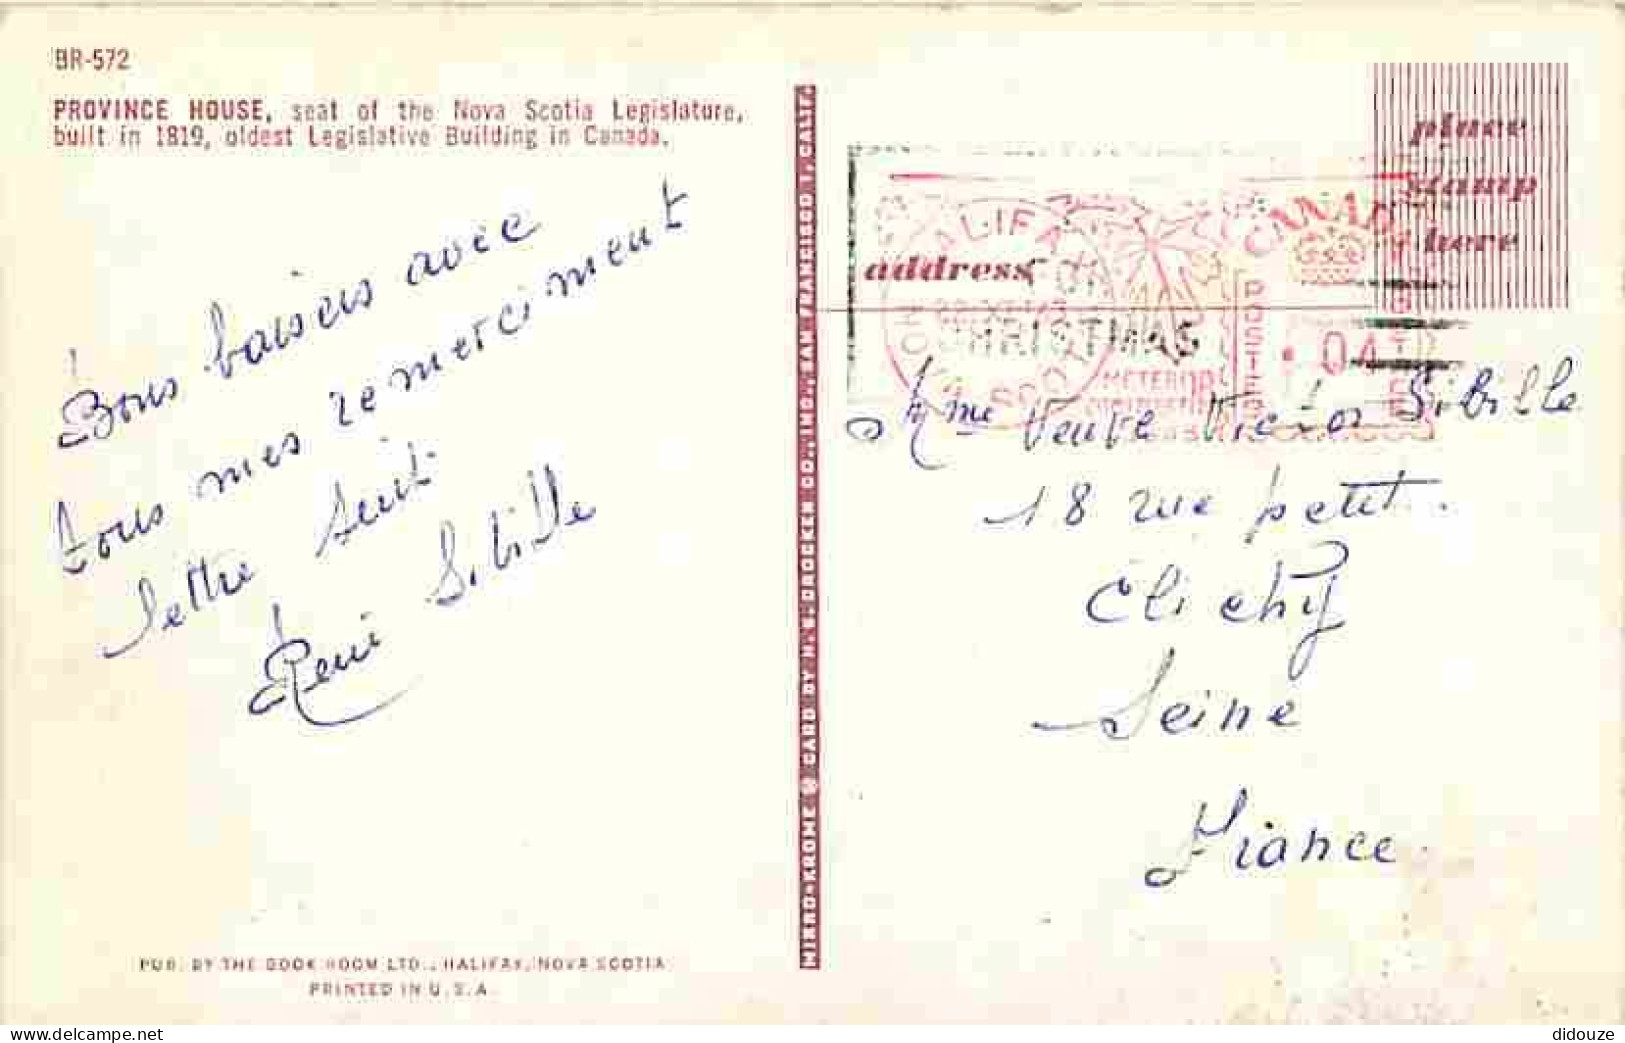 BR-572
PROVINCE HOUSE, seat of the Nova Scotia Legislature,
built in 1819, oldest Legislative Building in Canada.
Bons baisers avec
tous mes remerciment
lettre suit
René Sibille
PUB. BY THE BOOK ROOM LTD., HALIFAX, NOVA SCOTIA
PRINTED IN U.S.A.
MIRRO-KROME ® CARD BY H.S. CROCKER CO., INC., SAN FRANCISCO 1, CALIF.
place
stamp
here
address
HALIFAX
CHRISTMAS
CANADA
POSTES
04
METER
Mme Veuve Victor Sibille
18 rue petit.
Clichy
Seine
France
didouze
delcampe.net